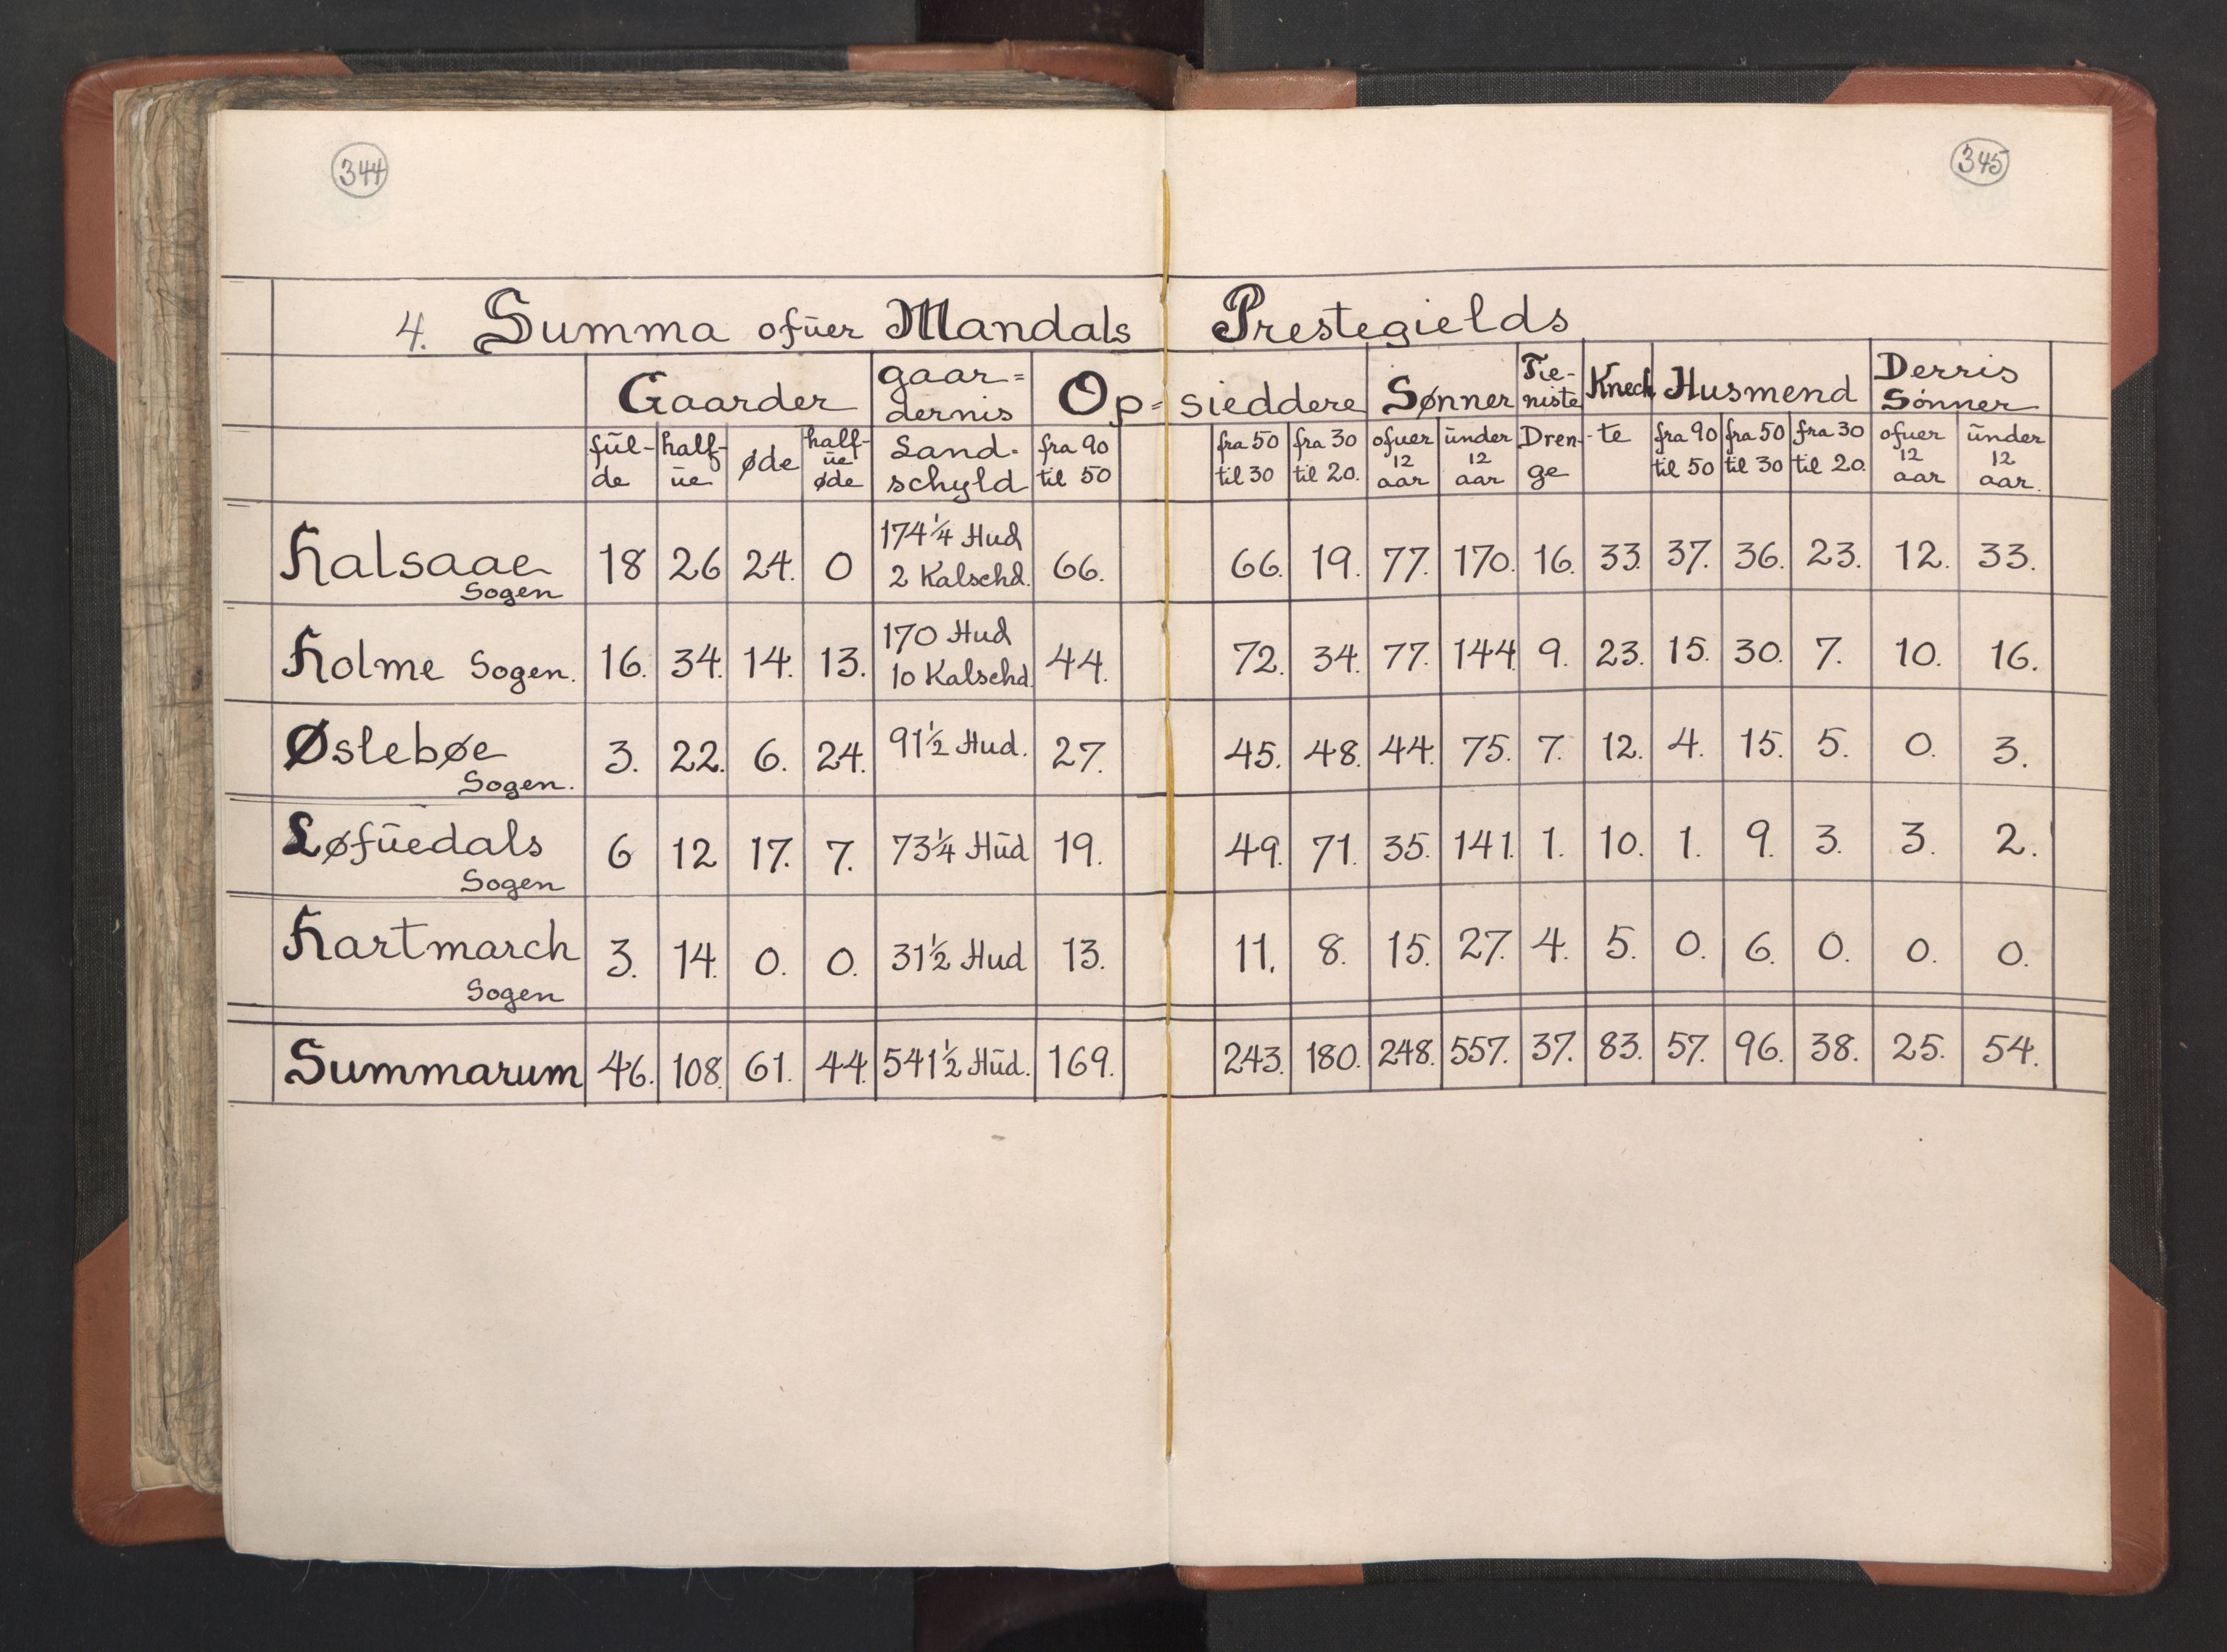 344
345
4. Summa ofűer Mandals Prestegields
Gaarder gaar= dernis Op= sieddere Sønner Tie- niste Knech Husmend Derris Sønner
fűl- de half- űe øde half- űe øde Land- schyld fra 90 til 50 fra 50 til 30 fra 30 til 20. ofuer 12 aar űnder 12 aar Dren- ge -te fra 90 til 50 fra 50 til 30 fra 30 til 20. ofuer 12 aar űnder 12 aar.
Halsaae Sogen 18 26 24. 0 174¼ Hud 2 Kalschd. 66. 66. 19. 77. 170. 16. 33. 37. 36. 23. 12. 33.
Holme Sogen. 16. 34. 14. 13. 170 Hud 10 Kalschd. 44. 72. 34. 77. 144. 9. 23. 15. 30. 7. 10. 16.
Øslebøe Sogen. 3. 22. 6. 24. 91½ Hud. 27. 45. 48. 44. 75. 7. 12. 4. 15. 5. 0. 3.
Løfűedals Sogen 6 12 17. 7. 73¼ Hűd 19. 49. 71. 35. 141. 1. 10. 1. 9. 3. 3. 2.
Hartmarch Sogen 3. 14. 0. 0. 31½ Hud 13. 11. 8. 15. 27. 4. 5. 0. 6. 0. 0. 0.
Summarum 46. 108. 61. 44. 541½ Hűd. 169. 243. 180. 248. 557. 37. 83. 57. 96. 38. 25. 54.